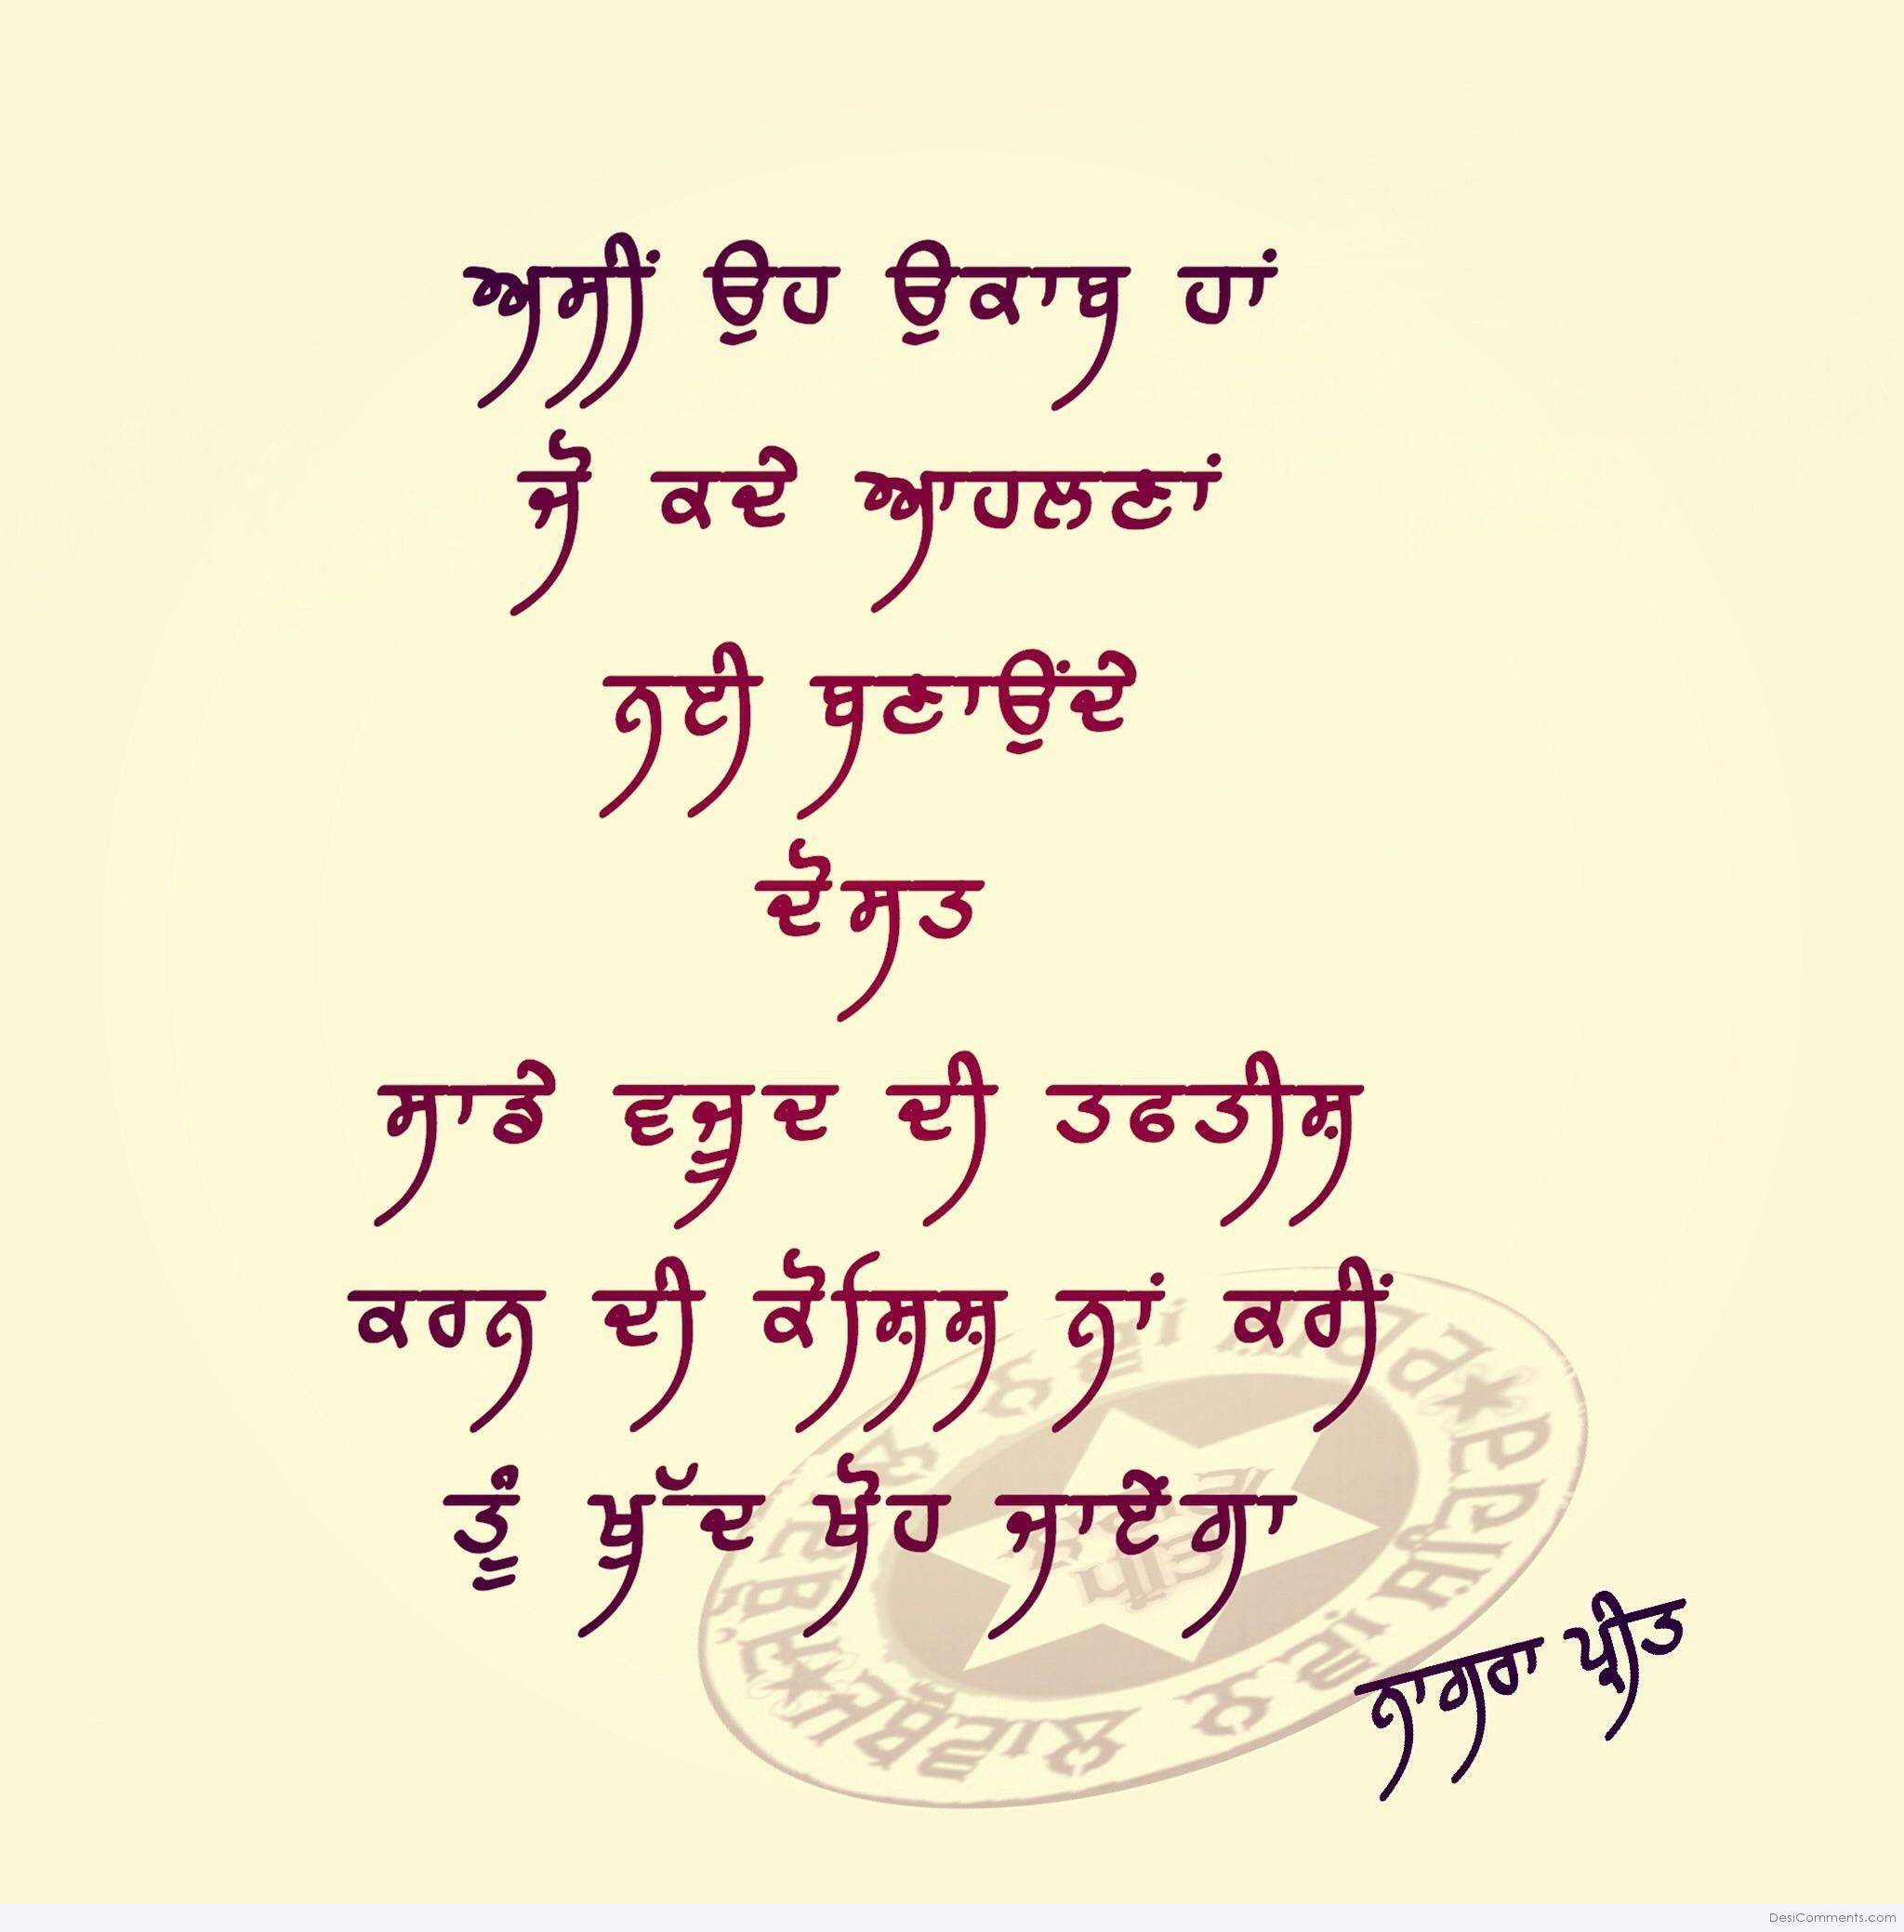 ਅਸੀਂ ਉਹ ਉਕਾਬ ਹਾਂ
ਜੋ ਕਦੇ ਆਹਲਣਾਂ
ਨਈ ਬਣਾਉਂਦੇ
ਦੋਸਤ
ਸਾਡੇ ਵਜੂਦ ਦੀ ਤਫਤੀਸ਼
ਕਰਨ ਦੀ ਕੋਸ਼ਿਸ਼ ਨਾਂ ਕਰੀਂ
ਤੂੰ ਖ਼ੁੱਦ ਖੋਹ ਜਾਏਂਗਾ
ਨਾਗਰਾ ਪ੍ਰੀਤ
DesiComments.com